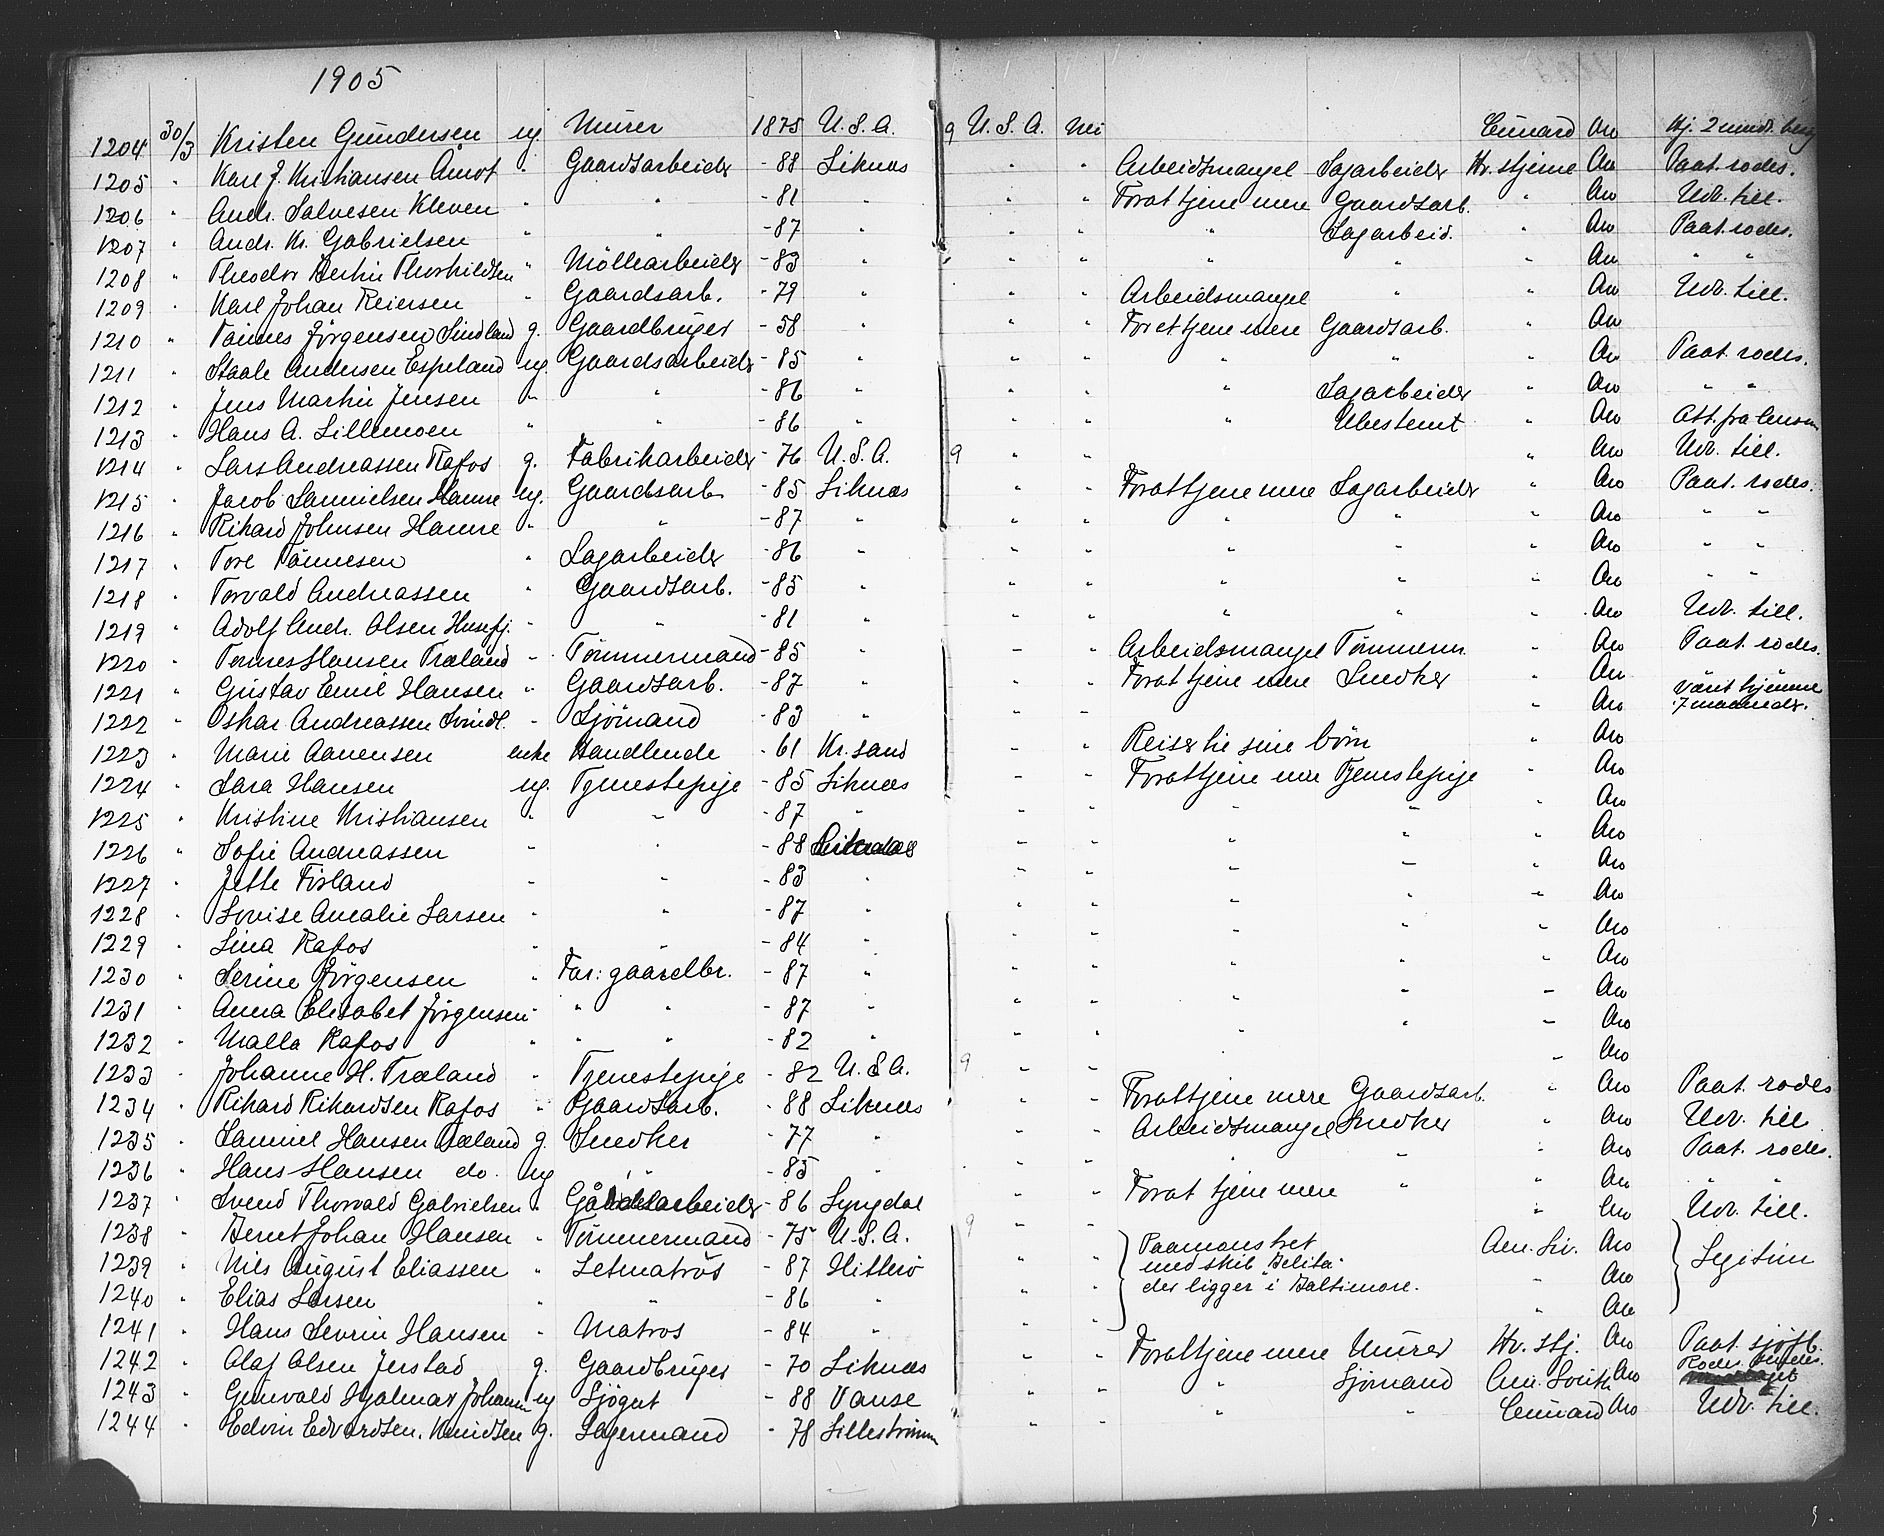 1905
1204 30/3 Kristen Gundersen ug. Murer 1875 U.S.A. 9 U.S.A. Nei Cunard Aro Hj. 2 mndr.
1205 " Karl J. Kristiansen Åmot " Gaardsarbeider - 88 Liknæs " " Arbeidsmangel Sagarbeider Hv. stjerne Aro Paat. rodes.
1206 " Andr. Salvesen Kleven " " - 81 " " " Forat tjene mere Gaardsarb. " Aro Udv. till.
1207 " Andr. Kr. Gabrielsen " " - 87 " " " " Sagarbeid. " Aro Paat. rodes.
1208 " Theodor Bertin Thorkildsen " Möllearbeider - 83 " " " " " " Aro " "
1209 " Karl Johan Reiersen " Gaardsarb. - 79 " " " Arbeidsmangel " " Aro Udv. till.
1210 " Tönnes Jörgensen Sindland g. Gaardbruger - 58 " " " Forat tjene mere Gaardsarb. " Aro
1211 " Staale Andersen Espeland ug. Gaardsarbeider - 85 " " " " " " Aro Paat. rodes.
1212 " Jens Martin Jensen " " - 86 " " " " Sagarbeider " Aro " "
1213 " Hans A. Lillemoen " " - 86 " " " " Ubestemt " Aro Att. fra
1214 " Lars Andreassen Rafos g. Fabrikarbeider - 76 U.S.A. 9 " " " Aro Udv. till.
1215 " Jacob Samuelsen Hamre ug. Gaardsarb - 85 Liknæs " " Forat tjene mere Sagarbeider " Aro Paat. rodes.
1216 " Rikard Johnsen Hamre " " - 87 " " " " " " Aro " "
1217 " Tore Tönnesen " Sagarbeider - 86 " " " " " " Aro " "
1218 " Torvald Andreassen " Gaardsarb. - 85 " " " " " " Aro " "
1219 " Adolf Andr. Olsen Husefj. " " - 81 " " " " " " Aro Udv. till.
1220 " Tønnes Hansen Træland " Tömmermand - 85 " " " Arbeidsmangel Tömmerm. " Aro Paat. rodes.
1221 " Gustav Emil Hansen " Gaardsarb. - 87 " " " Forat tjene mere Snedker " Aro
1222 " Oskar Andreassen Svindl. " Sjömand - 83 " " " " Aro Været hjemme 7 maaneder.
1223 " Marie Aanensen enke Handlende - 61 Kr.sand " " Reiser til sine börn " Aro
1224 " Sara Hansen ug. Tjenestepige - 85 Liknæs " " Forat tjene mere Tjenestepige " Aro
1225 " Kristine Kristiansen " " - 87 " " " " " " Aro
1226 " Sofie Andreassen " " - 88 Liknæs " " " " " Aro
1227 " Jette Fisland " " - 83 " " " " " " Aro
1228 " Lovise Amalie Larsen " " - 87 " " " " " " Aro
1229 " Lina Rafos " " - 84 " " " " " " Aro
1230 " Serine Jörgensen " Far: gaardbr. - 87 " " " " " " Aro
1231 " Anna Elisabet Jörgensen " " " - 87 " " " " " " Aro
1232 " Malla Rafos " " " - 82 " " " " " " Aro
1233 " Johanne H. Træland " Tjenestepige - 82 U.S.A. 9 " " " Aro
1234 " Rikard Rikardsen Rafos " Gaardsarb. - 88 Liknæs " " Forat tjene mere Gaardsarb. " Aro Paat. rodes
1235 " Samuel Hansen Træland g. Snedker - 77 " " " Arbeidsmangel Snedker " Aro Udv. till
1236 " Hans Hansen do. ug " - 85 " " " " " " Aro Paat. rodes.
1237 " Svend Thorvald Gabrielsen " Gårdsarbeider - 86 Lyngdal " " Forat tjene mere " " Aro " "
1238 " Bernt Johan Hansen " Tömmermand - 75 U.S.A. 9 " " " Aro Udv. till.
1239 " Nils August Eliassen " Letmatrös - 87 Hitterö " " Paamönstret Am. Lin. Aro
1240 " Elias Larsen " " - 86 " " " med skib "Delita" " Aro Legitim
1241 " Hans Severin Hansen " Matros - 84 " " " der ligger i Baltimore. " Aro
1242 " Olaf Olsen Jerstad g. Gaardbruger - 70 Liknæs " " Forat tjene mere Murer Hv. Stj. Aro Paat. sjöfb.
1243 " Gunvald Hjalmar Johannen ug Sjögut - 88 Vanse " " " Sjömand Am. South Aro Rodes.
1244 " Edvin Edvardsen. Knudsen g. Lagermand - 78 Lilleströmm " " " " Cunard Aro Udv. till.